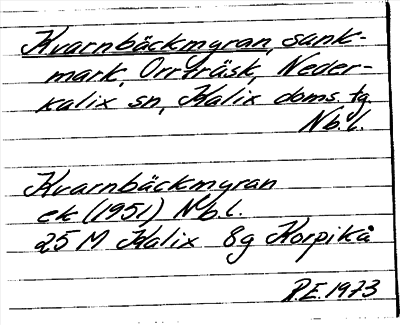 Kvarnbäckmyran, sank-
mark, Orrträsk, Neder-
kalix sn, Kalix doms. tg
Nb. l.
Kvarnbäckmyran
ek (1951) Nb.l.
25 M Kalix 8g Korpikå
R.E. 1973